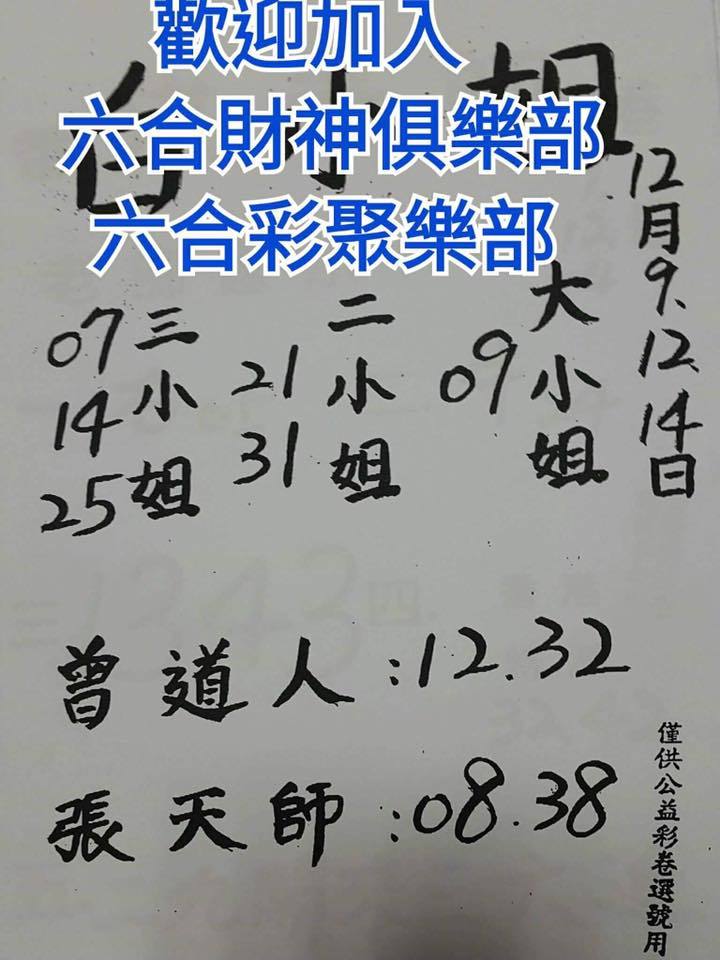 歡迎加入
六合財神俱樂部
六合彩聚樂部
白小姐
12月9.12.14日
大小姐
09
二小姐
21
31
三小姐
07
14
25
曾道人:12.32
張天師:08.38
僅供公益彩卷選號用